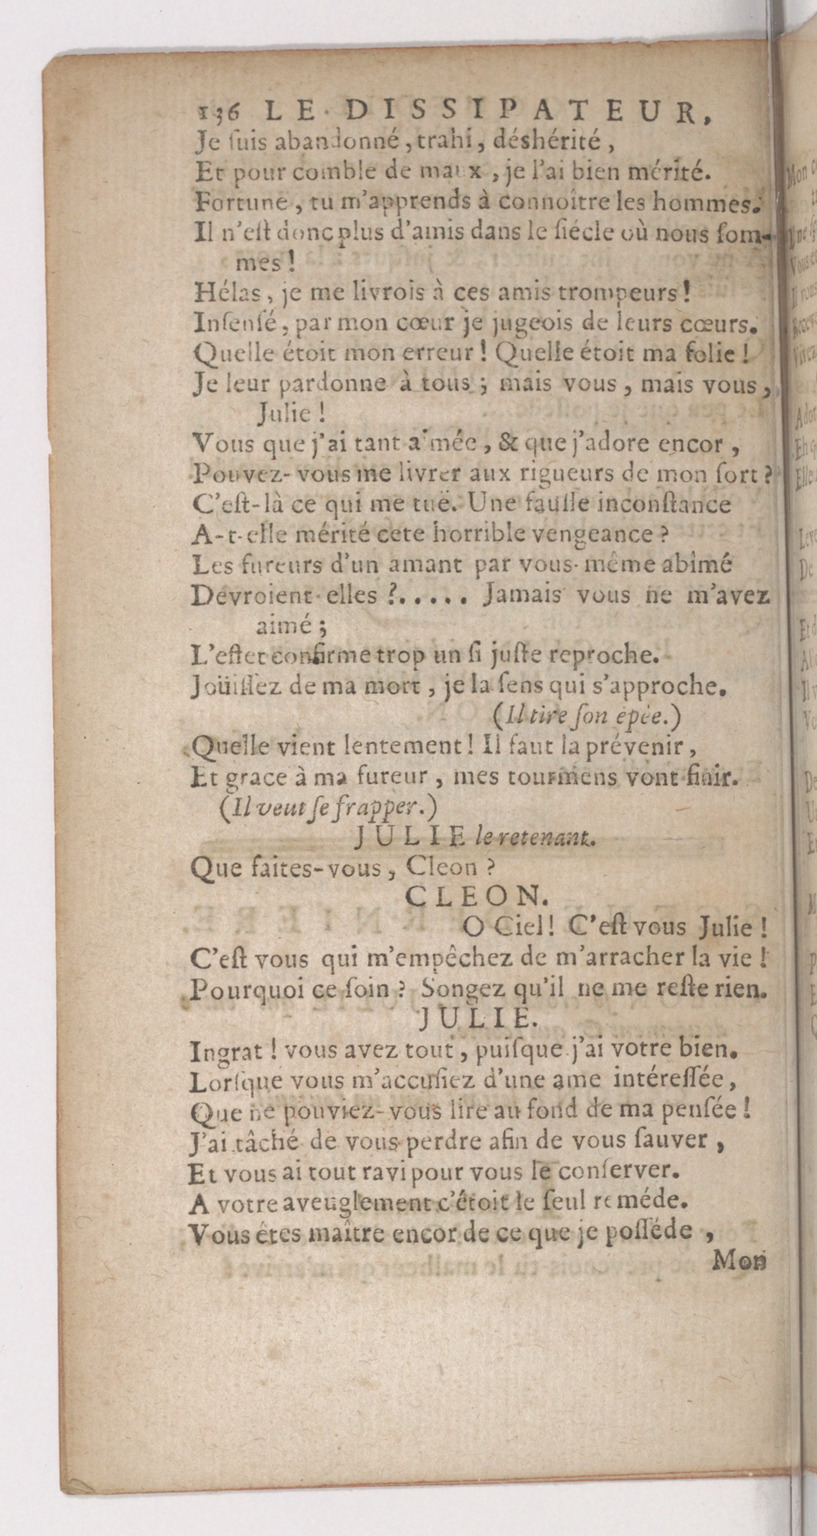 136 LE DISSIPATEUR,
Je ſuis abandonné, trahi, déshérité,
Et pour comble de maux, je l'ai bien mérité.
Fortune, tu m'apprends à connoître les hommes.
Il n'eſt donc plus d'amis dans le ſiécle où nous ſom-
mes!
Hélas, je me livrois à ces amis trompeurs!
Inſenſé, par mon cœur je jugeois de leurs cœurs.
Quelle étoit mon erreur! Quelle étoit ma folie!
Je leur pardonne à tous; mais vous, mais vous,
Julie!
Vous que j'ai tant aimée, & que j'adore encor,
Pouvez-vous me livrer aux rigueurs de mon ſort?
C'eſt-là ce qui me tuë. Une fauſſe inconſtance
A-t-elle mérité cete horrible vengeance?
Les fureurs d'un amant par vous-même abîmé
Devroient-elles?..... Jamais vous ne m'avez
aimé;
L'effet confirme trop un ſi juſte reproche.
Joüiſſez de ma mort, je la ſens qui s'approche.
(Il tire ſon épée.)
Quelle vient lentement! Il faut la prévenir,
Et grace à ma fureur, mes tourmens vont finir.
(Il veut ſe frapper.)
JULIE le retenant.
Que faites-vous, Cleon?
CLEON.
O Ciel! C'eſt vous Julie!
C'eſt vous qui m'empêchez de m'arracher la vie!
Pourquoi ce ſoin? Songez qu'il ne me reſte rien.
JULIE.
Ingrat! vous avez tout, puiſque j'ai votre bien.
Lorſque vous m'accuſiez d'une ame intéreſſée,
Que ne pouviez-vous lire au fond de ma penſée!
J'ai tâché de vous perdre afin de vous ſauver,
Et vous ai tout ravi pour vous le conſerver.
A votre aveuglement c'étoit le ſeul reméde.
Vous êtes maître encor de ce que je poſſéde,
Mon